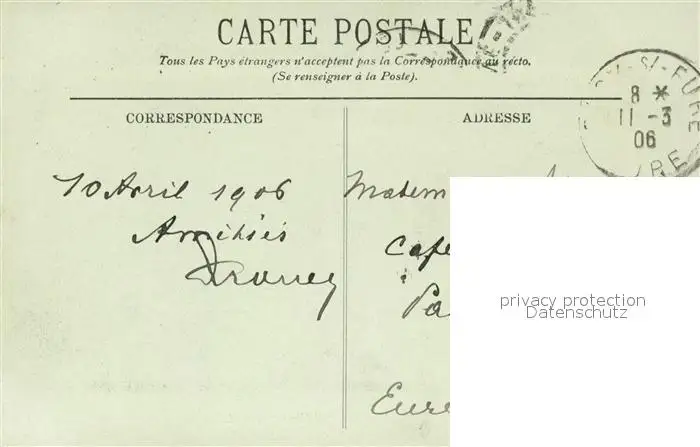 CARTE POSTALE
Tous les Pays étrangers n'acceptent pas la Correspondance au recto.
(Se renseigner à la Poste).
CORRESPONDANCE
ADRESSE
8 *
11 -3
06
S/-EURE
10 Avril 1906
Amitiés
Madem
Cafe
Pa
Eure
privacy protection
Datenschutz